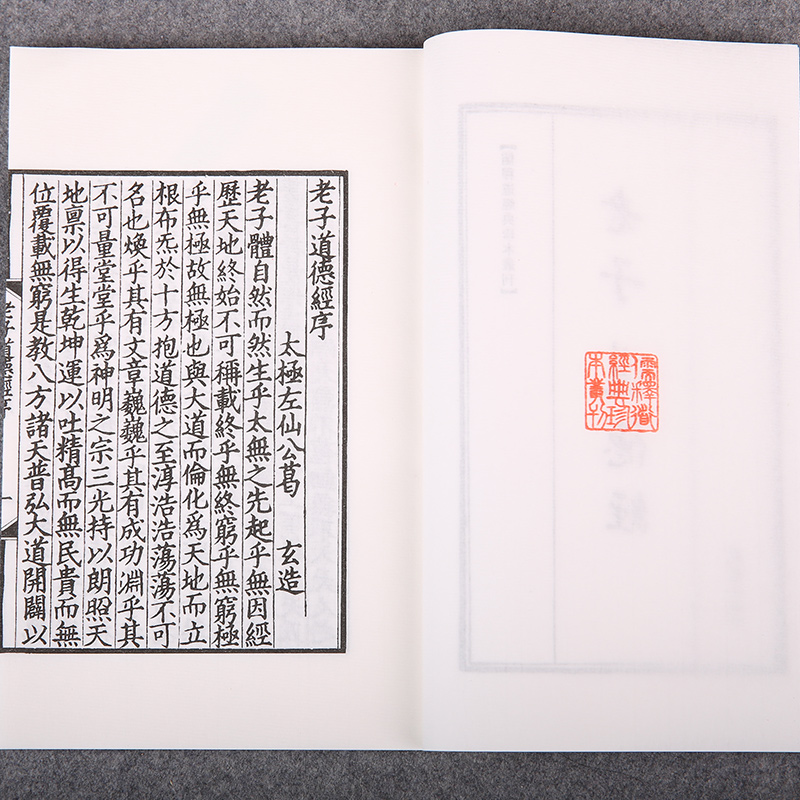 儒釋道
經典珍
本叢刊
老子道德經序
太極左仙公葛 玄造
老子體自然而然生乎太無之先起乎無因經
歷天地終始不可稱載終乎無終窮乎無窮極
乎無極故無極也與大道而倫化爲天地而立
根布炁於十方抱道德之至淳浩浩蕩蕩不可
名也煥乎其有文章巍巍乎其有成功淵乎其
不可量堂堂乎爲神明之宗三光持以朗照天
地禀以得生乾坤運以吐精髙而無民貴而無
位覆載無窮是教八方諸天普弘大道開闢以